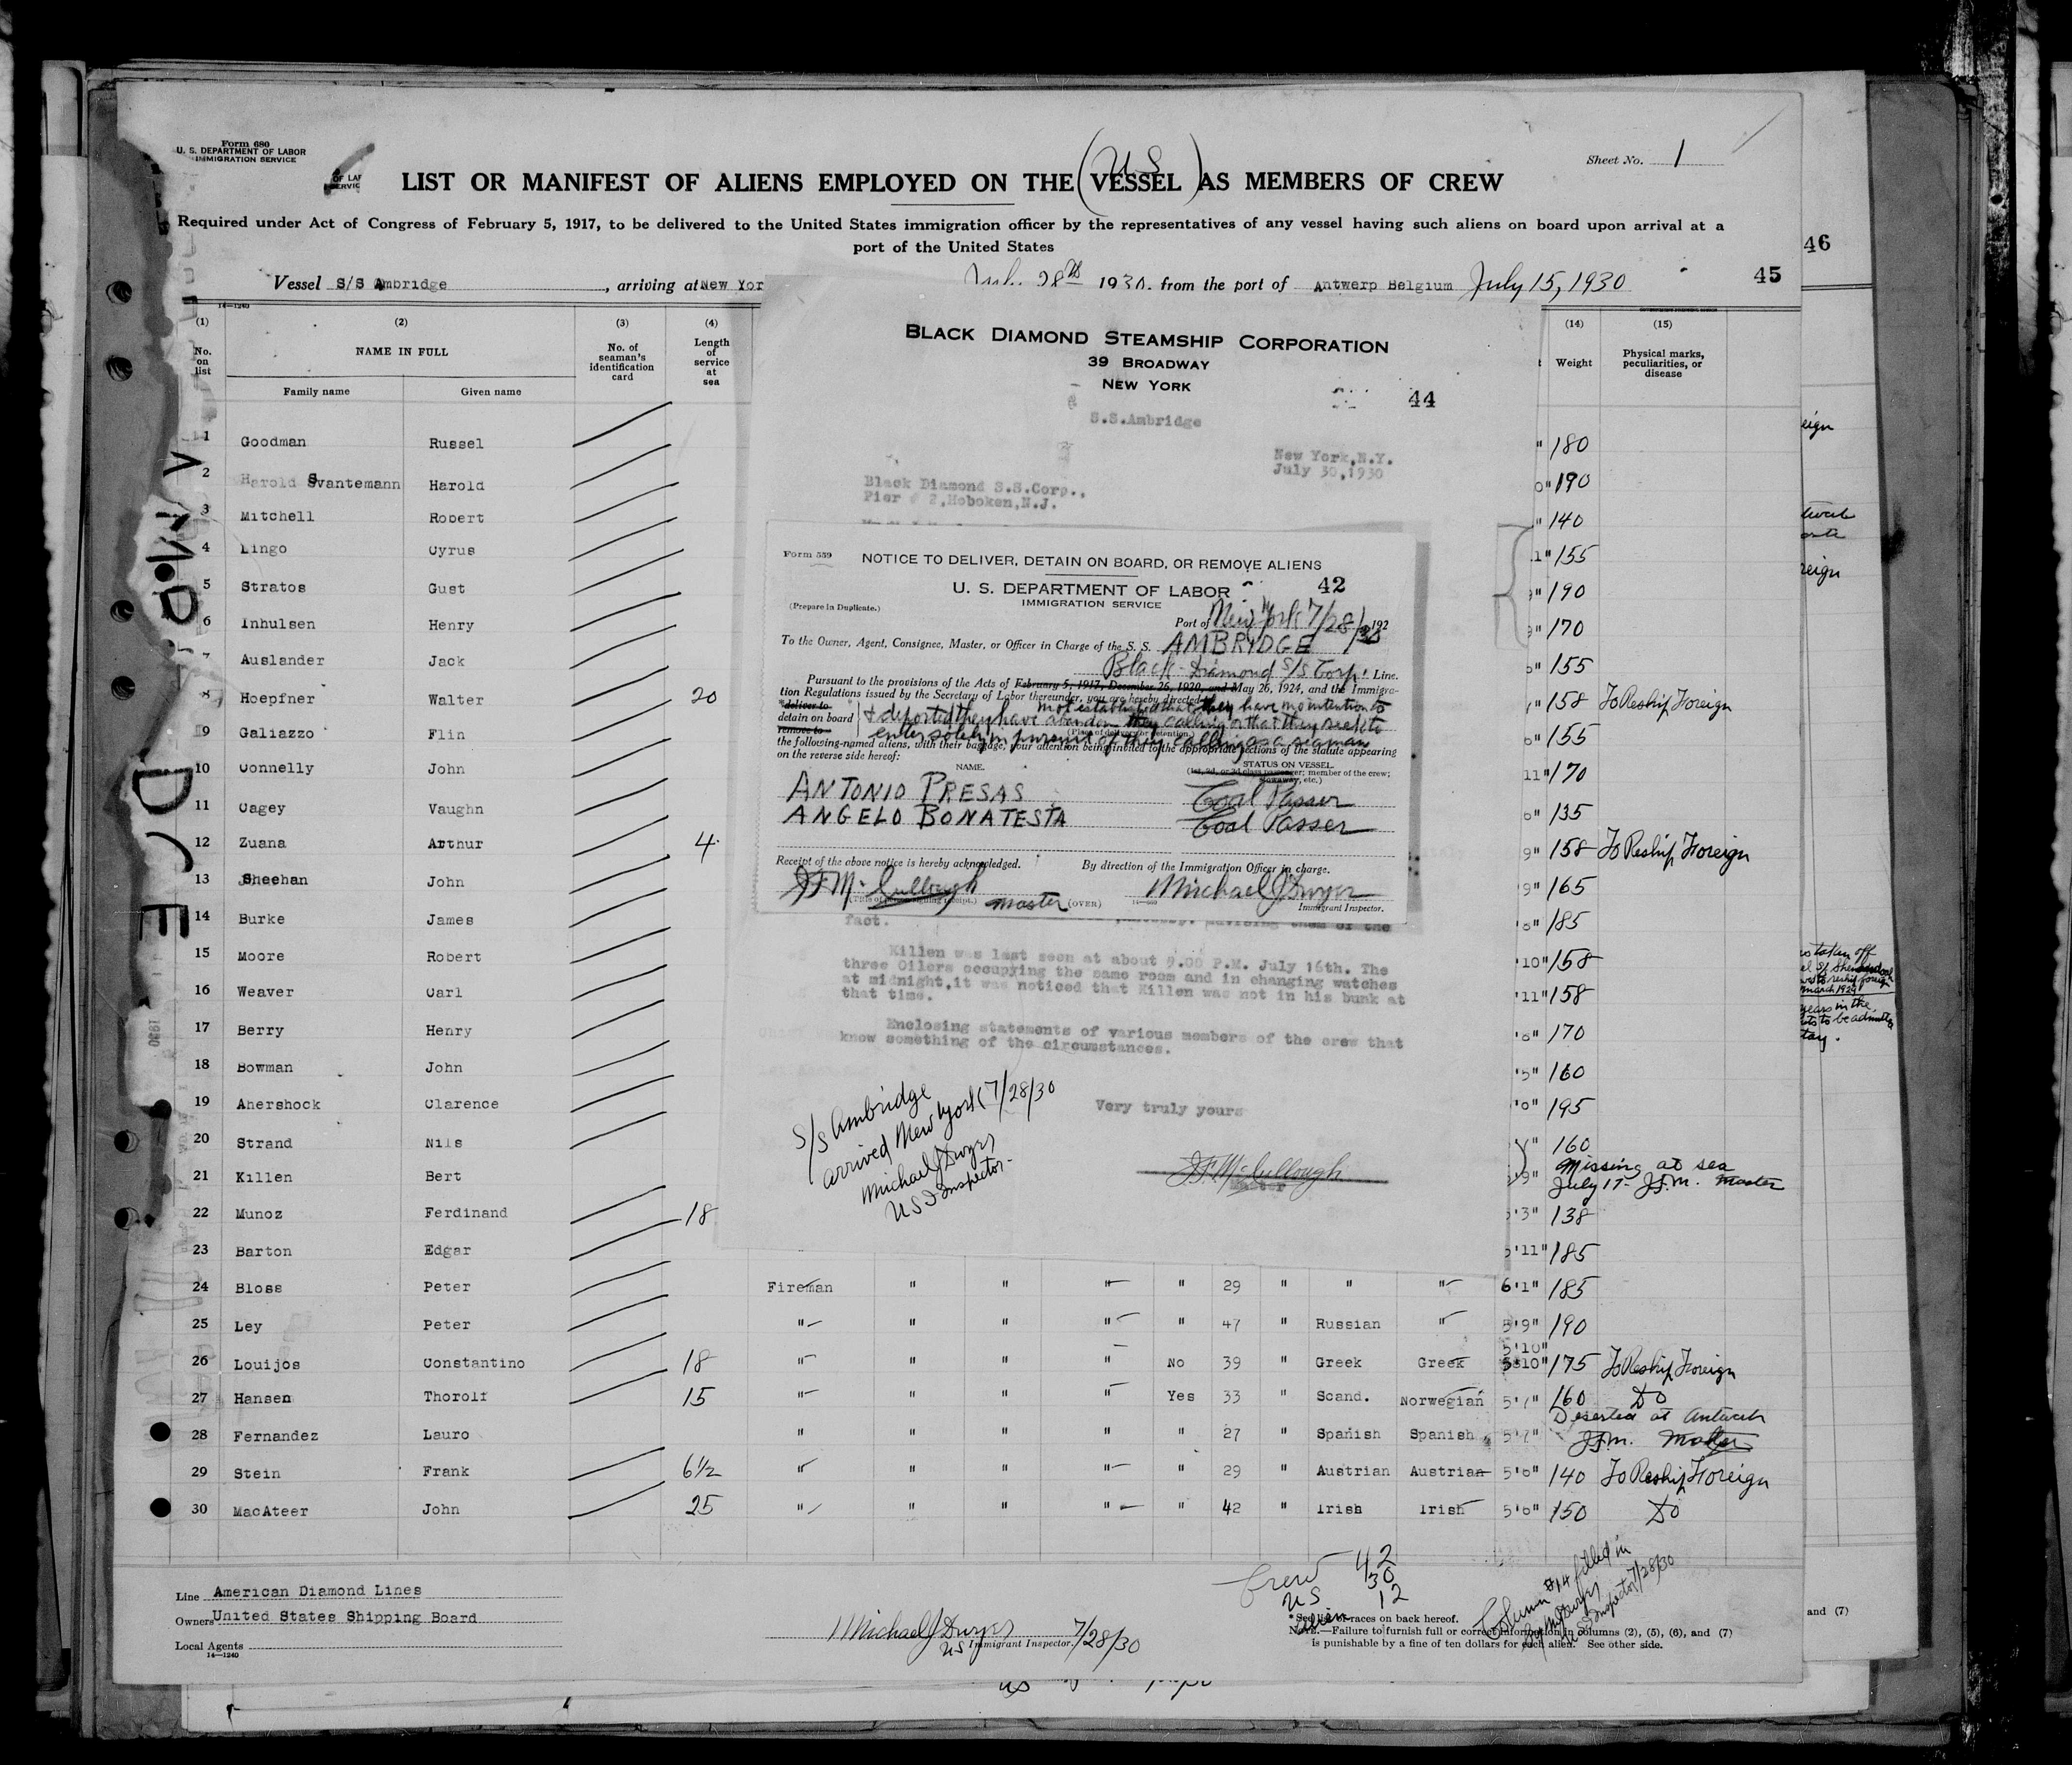 Form 680
U. S. DEPARTMENT OF LABOR
IMMIGRATION SERVICE
Sheet No. 1
(US)
LIST OR MANIFEST OF ALIENS EMPLOYED ON THE VESSEL AS MEMBERS OF CREW
Required under Act of Congress of February 5, 1917, to be delivered to the United States immigration officer by the representatives of any vessel having such aliens on board upon arrival at a
port of the United States
46
45
Vessel S/S Ambridge, arriving at New Yor
28th 1930. from the port of Antwerp Belgium July 15, 1930
14—1240
(1) (2) (3) (4) (14) (15)
No. on list
NAME IN FULL
Family name Given name
No. of seaman's identification card
Length of service at sea
Weight
Physical marks, peculiarities, or disease
1 Goodman Russel " 180
2 Harold Svantemann Harold 0" 190
3 Mitchell Robert " 140
4 Lingo Cyrus 1" 155
5 Stratos Gust " 190
6 Inhulsen Henry " 170
7 Auslander Jack " 155
8 Hoepfner Walter 20 " 158 To Reship Foreign
9 Galiazzo Flin " 155
10 Connelly John 11" 170
11 Cagey Vaughn " 135
12 Zuana Arthur 4 9" 158 To Reship Foreign
13 Sheehan John '9" 165
14 Burke James " 185
15 Moore Robert '10" 158
16 Weaver Carl '11" 158
17 Berry Henry " 170
18 Bowman John '5" 160
19 Ahershock Clarence " 195
20 Strand Nils " 160
21 Killen Bert '9" Missing at sea
July 17- J.F.M. Master
22 Munoz Ferdinand 18 '3" 138
23 Barton Edgar '11" 185
24 Bloss Peter Fireman " " " " 29 " " " 6'1" 185
25 Ley Peter " " " " " 47 " Russian " 5'9" 190
5'10"
26 Louijos Constantino 18 " " " " No 39 " Greek Greek 5'10" 175 To Reship Foreign
27 Hansen Thorolf 15 " " " " Yes 33 " Scand. Norwegian 5'7" 160 Do
Deserted at Antwerp
28 Fernandez Lauro " " " " 27 " Spanish Spanish 5'7" J.F.M. Master
29 Stein Frank 6½ " " " " " 29 " Austrian Austrian 5'6" 140 To Reship Foreign
30 MacAteer John 25 " " " " " 42 " Irish Irish 5'6" 150 Do
BLACK DIAMOND STEAMSHIP CORPORATION
39 BROADWAY
NEW YORK
44
S.S.Ambridge
New York,N.Y.
July 30,1930
Black Diamond S.S.Corp.,
Pier # 2,Hoboken,N.J.
Form 559
NOTICE TO DELIVER, DETAIN ON BOARD, OR REMOVE ALIENS
U. S. DEPARTMENT OF LABOR
42
IMMIGRATION SERVICE
(Prepare in Duplicate.)
Port of New York 7/28/30 192
To the Owner, Agent, Consignee, Master, or Officer in Charge of the S. S. AMBRIDGE
Black-Diamond S/S Corp. Line.
Pursuant to the provisions of the Acts of February 5, 1917, December 26, 1920, and May 26, 1924, and the Immigra-
tion Regulations issued by the Secretary of Labor thereunder, you are hereby directed
deliver to not established that they have no intention to
detain on board & deported they have abandon they calling or that they seek to
remove to enter solely in pursuit of they calling as a seaman
(Place of delivery or detention.)
the following-named aliens, with their baggage, your attention being invited to the appropriate sections of the statute appearing
on the reverse side hereof:
NAME.
STATUS ON VESSEL.
(1st, 2d, or 3d class passenger; member of the crew;
stowaway, etc.)
ANTONIO PRESAS Coal Passer
ANGELO BONATESTA Coal Passer
Receipt of the above notice is hereby acknowledged. By direction of the Immigration Officer in charge.
J F McCullough Master Michael J Dwyer
(Title of person signing receipt.) (OVER) Immigrant Inspector.
fact. advising them of the
Killen was last seen at about 9.00 P.M. July 16th. The
three Oilers occupying the same room and in changing watches
at midnight,it was noticed that Killen was not in his bunk at
that time.
Enclosing statements of various members of the crew that
know something of the circumstances.
Very truly yours
J F McCullough
Master
S/S Ambridge
arrived New York 7/28/30
Michael J Dwyer
US I Inspector-
Line American Diamond Lines
Owners United States Shipping Board
Local Agents
14—1240
Michael J Dwyer
US Immigrant Inspector. 7/28/30
Crew 42
US 30
Alien 12
*See list of races on back hereof.
NOTE.—Failure to furnish full or correct information in columns (2), (5), (6), and (7)
is punishable by a fine of ten dollars for each alien. See other side.
Column #14 filled in
by M J Dwyer
US Inspector 7/28/30
and (7)